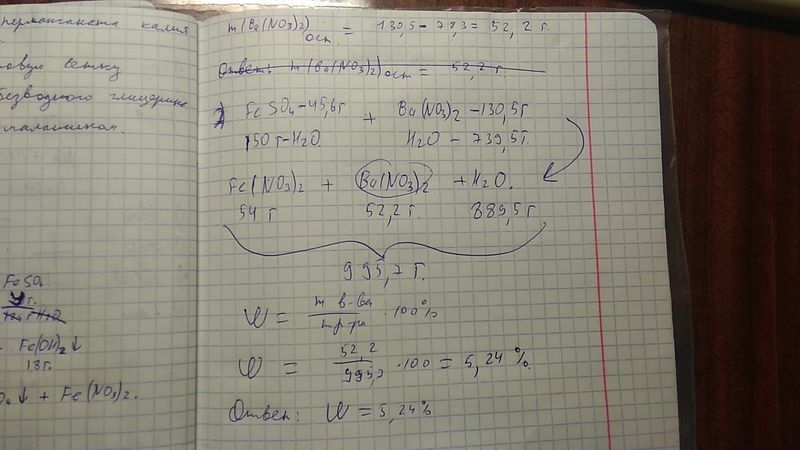 перманганата калия
овую сетку
безводного глицерина
FeSO4
Fe(OH)2↓
18г.
↓ + Fe(NO3)2.
m(Ba(NO3)2)ост. = 130,5 - 78,3 = 52,2 г.
Ответ: m(Ba(NO3)2)ост = 52,2 г.
FeSO4 - 45,6г + Ba(NO3)2 - 130,5г
150 г - H2O H2O - 739,5г.
Fe(NO3)2 + Ba(NO3)2 + H2O.
54 г 52,2 г. 889,5г
995,7 г.
W = m в-ва / m р-ра · 100%
W = 52,2 / 995,7 · 100 = 5,24 %.
Ответ: W = 5,24%